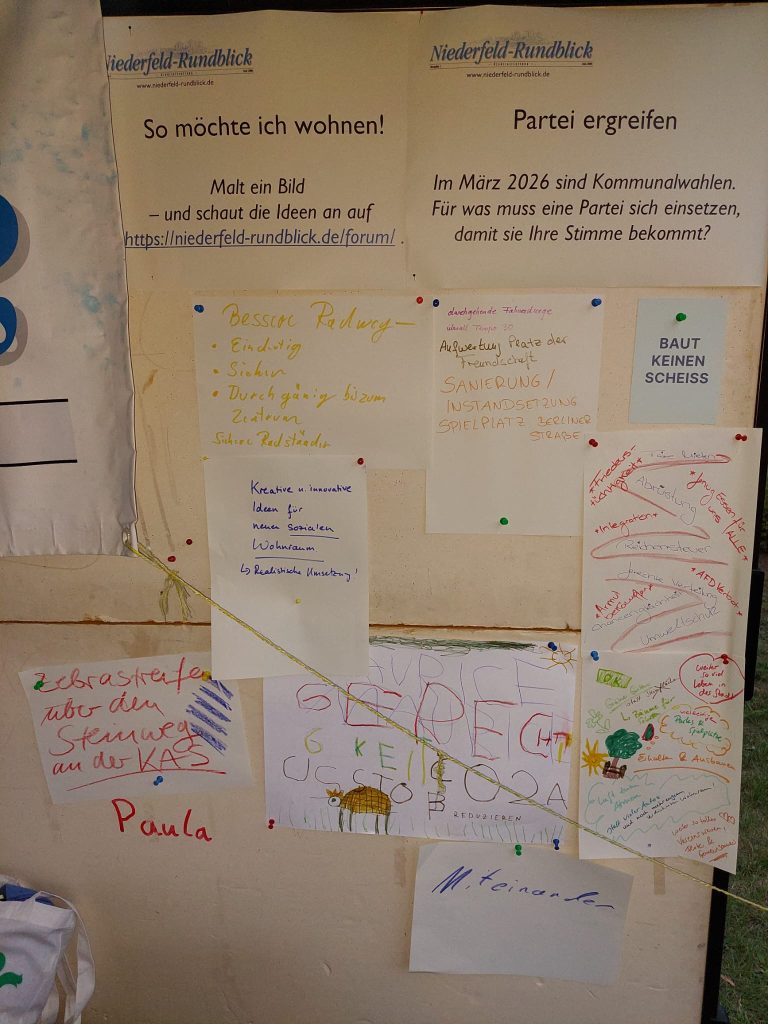 Niederfeld-Rundblick
www.niederfeld-rundblick.de
So möchte ich wohnen!
Malt ein Bild
– und schaut die Ideen an auf
https://niederfeld-rundblick.de/forum/ .
Niederfeld-Rundblick
www.niederfeld-rundblick.de
Partei ergreifen
Im März 2026 sind Kommunalwahlen.
Für was muss eine Partei sich einsetzen,
damit sie Ihre Stimme bekommt?
Bessere Radweg—
• Eindeutig
• Sicher
• Durchgänig bis zum
Zentrum
Sichere Radständer
durchgehende Fahrradwege
überall Tempo 30
Aufwertung Platz der
Freundschaft
SANIERUNG /
INSTANDSETZUNG
SPIELPLATZ BERLINER
STRAßE
BAUT
KEINEN
SCHEISS
Kreative u. innovative
Ideen für
neuen sozialen
Wohnraum
↳ Realistische Umsetzung!
*Friedens-
tüchtigkeit*
Abrüstung
*genug Essen für
uns ALLE*
*Integration*
Reichensteuer
*AFD Verbot*
gerechte Verteilung
*Armut
bekämpfen*
Chancengleichheit
Umweltschutz
Zebrastreifen
über den
Steinweg
an der KAS
Paula
GERECHT
CO2
REDUZIEREN
weiter
so viel
Leben in
der Stadt
Bäume für
Parks &
Spielplätze
Erhalten & Ausbauen
Luft zum
Atmen
statt vieler Autos
Miteinander